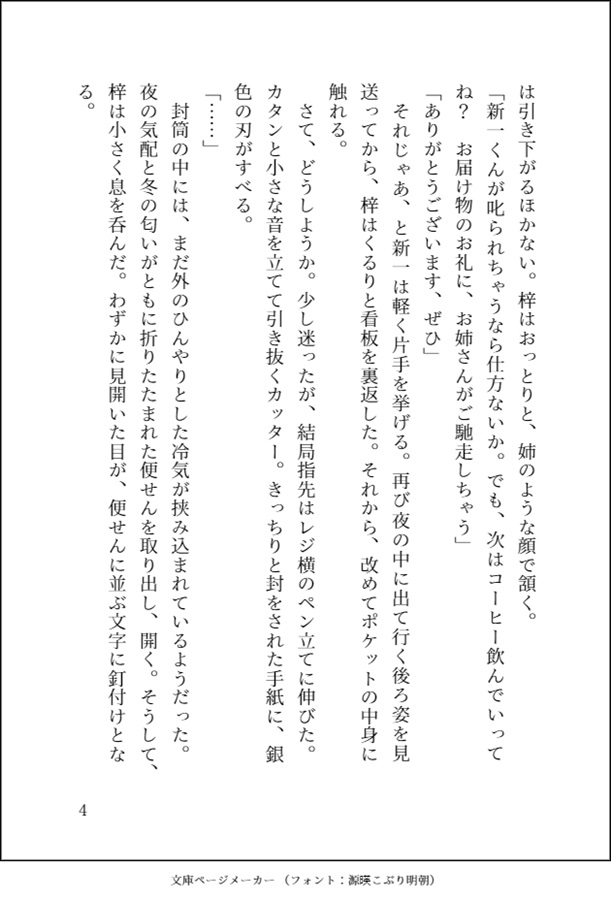 は引き下がるほかない。梓はおっとりと、姉のような顔で頷く。
「新一くんが叱られちゃうなら仕方ないか。でも、次はコーヒー飲んでいって
ね？　お届け物のお礼に、お姉さんがご馳走しちゃう」
「ありがとうございます、ぜひ」
　それじゃあ、と新一は軽く片手を挙げる。再び夜の中に出て行く後ろ姿を見
送ってから、梓はくるりと看板を裏返した。それから、改めてポケットの中身に
触れる。
　さて、どうしようか。少し迷ったが、結局指先はレジ横のペン立てに伸びた。
カタンと小さな音を立てて引き抜くカッター。きっちりと封をされた手紙に、銀
色の刃がすべる。
「……」
　封筒の中には、まだ外のひんやりとした冷気が挟み込まれているようだった。
夜の気配と冬の匂いがともに折りたたまれた便せんを取り出し、開く。そうして、
梓は小さく息を呑んだ。わずかに見開いた目が、便せんに並ぶ文字に釘付けとな
る。
4
文庫ページメーカー （フォント：源暎こぶり明朝）